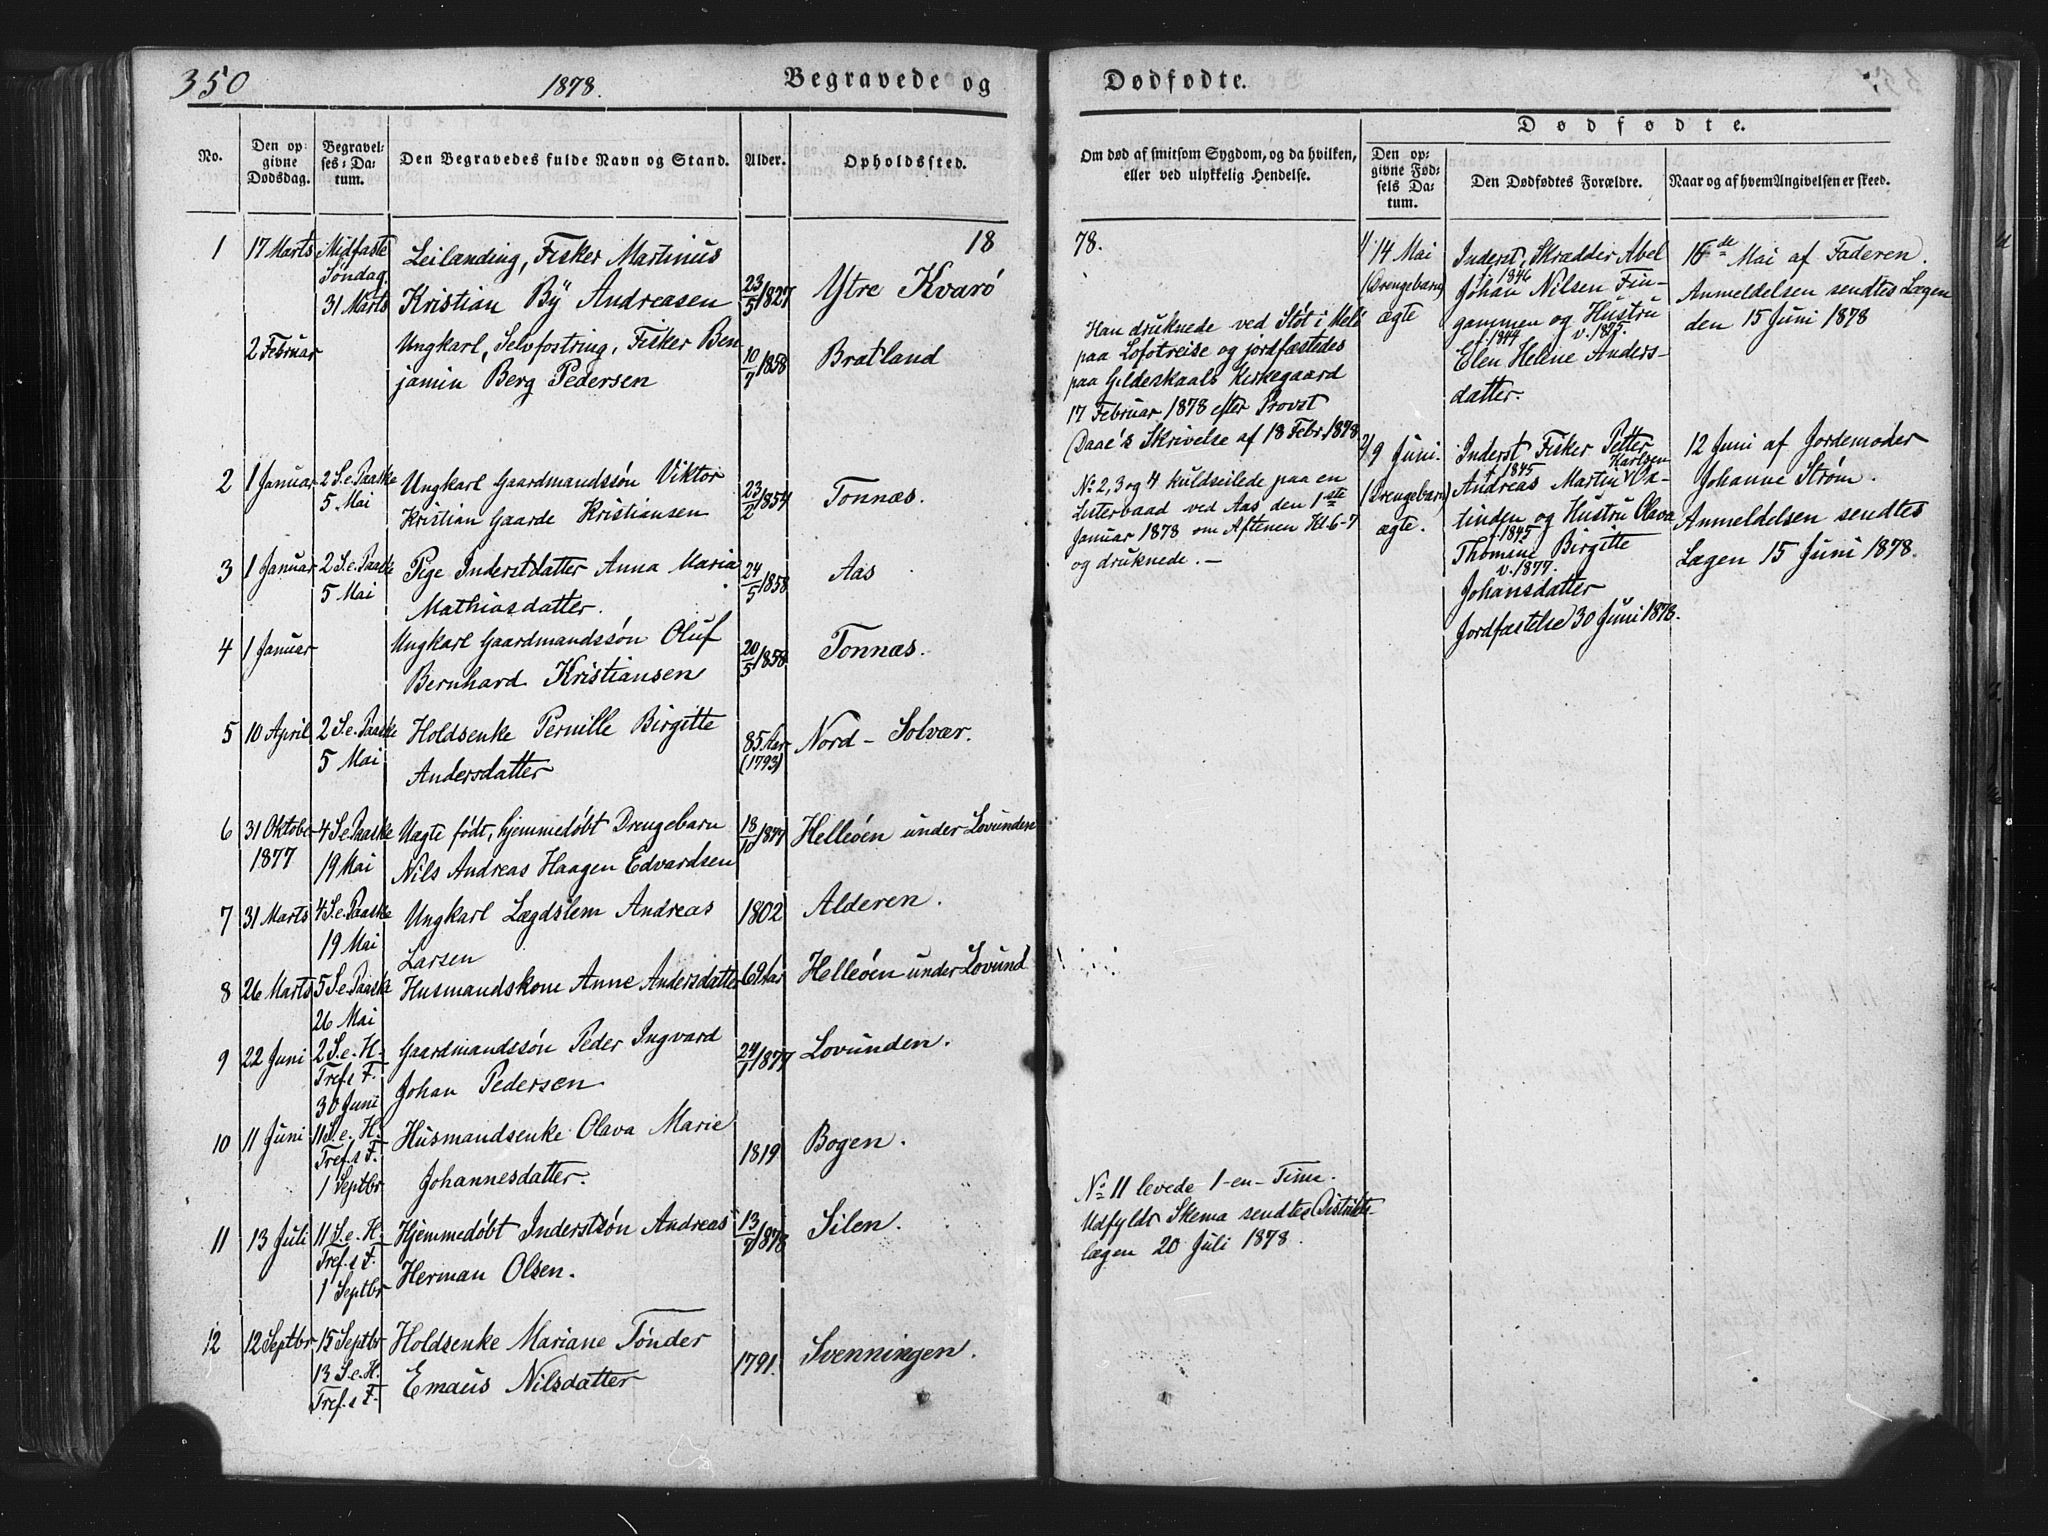 350
1878.
Begravede og
Dødfødte.
No.
Den op-
givne
Dødsdag.
Begravel-
ses-Da-
tum.
Den Begravedes fulde Navn og Stand.
Alder.
Opholdssted.
Om død af smitsom Sygdom, og da hvilken,
eller ved ulykkelig Hendelse.
Dødfødte.
Den op-
givne Fød-
sels Da-
tum.
Den Dødfødtes Forældre.
Naar og af hvem Angivelsen er skeed.
18
78.
1
17 Marts
Midfaste
Søndag
31 Marts
Leilænding, Fisker Martinus
Kristian Bÿ Andreasen
23/5 1827
Ytre Kvarø
2 Februar
Ungkarl, Selvfostring, Fisker Ben
jamin Berg Pedersen
10/7 1858
Bratland
Han druknede ved Støt i Melø
paa Lofotreise og jordfæstedes
paa Gildeskaals Kirkegaard
17 Februar 1878 efter Provst
Daae's Skrivelse af 18 Febr. 1878
2
1 Januar
2 S. e. Paaske
5 Mai
Ungkarl Gaardmandssøn Viktor
Kristian Gaarde Kristiansen
23/2 1854
Tonnæs.
No 2, 3 og 4 kuldseilede paa en
Listerbaad ved Aas den 1ste
Januar 1878 om Aftenen Kl. 6-7
og druknede. —
3
1 Januar
2 S. e. Paaske
5 Mai
Pige Inderstdatter Anna Maria
Mathiasdatter.
24/5 1858
Aas
4
1 Januar
Ungkarl Gaardmandssøn Oluf
Bernhard Kristiansen
20/5 1858
Tonnæs.
5
10 April
2 S. e. Paaske
5 Mai
Holdsenke Pernille Birgitte
Andersdatter
85 Aar
(1793)
Nord-Solvær.
6
31 Oktober
1877
4 S. e. Paaske
19 Mai
Uægte født, hjemmedøbt Drengebarn
Nils Andreas Haagen Edvardsen
18/10 1877
Helleøen under Lovunden
7
31 Marts
4 S. e. Paaske
19 Mai
Ungkarl Lægdslem Andreas
Larsen
1802
Alderen.
8
26 Marts
5 S. e. Paaske
26 Mai
Husmandskone Anne Andersdatter
69 Aar
Helleøen under Lovund
9
22 Juni
2 S. e. H.
Tref. s F.
30 Juni
Gaardmandssøn Peder Ingvard
Johan Pedersen
24/1 1877
Lovunden.
10
11 Juni
11 S. e. H.
Tref. s F.
1 Septbr
Husmandsenke Olava Marie
Johannesdatter.
1819
Bogen.
11
13 Juli
11 S. e. H.
Tref. s F.
1 Septbr
Hjemmedøbt Inderstsøn Andreas
Herman Olsen.
13/7 1878
Silen.
No 11 levede 1-en-Time.
Udfyldt Skema sendtes Distrikts-
lægen 20 Juli 1878.
12
12 Septbr
15 Septbr
13 S. e. H.
Tref. s F.
Holdsenke Mariane Tønder
Emaus Nilsdatter
1791.
Svenningen.
1/
14 Mai
(Drengebarn)
ægte
Inderst, Skrædder Abel
f. 1846
Johan Nilsen Fin-
gammen og Hustru
f. 1844 v. 1875.
Elen Helene Anders-
datter.
16de Mai af Faderen.
Anmeldelsen sendtes Lægen
den 15 Juni 1878
2/
9 Juni.
(Drengebarn)
ægte.
Inderst Fisker Petter
f. 1845 Karlsen
Andreas Martin
tinden og Hustru Olava
f. 1845
Thomine Birgitte
v. 1877.
Johansdatter
Jordfæstelse 30 Juni 1878.
12 Juni af Jordemoder
Johanne Strøm.
Anmeldelsen sendtes
Lægen 15 Juni 1878.